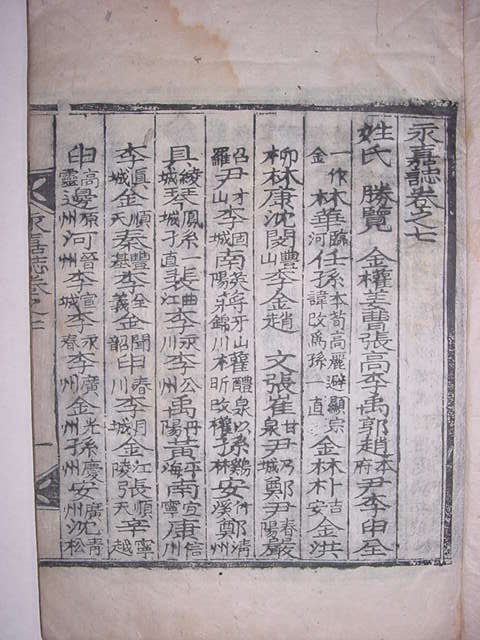 永嘉誌卷之七
姓氏 勝覽 金權姜曹張高李禹郭趙本府尹李申全
一作金林華臨河任孫本荀高麗避顯宗諱改爲孫一直金林朴吉安金洪
柳林康沈閔豊山李金趙 文張崔甘泉尹乃城鄭尹春陽嚴
召羅尹才山李固城南英陽蔣牙山權醴泉本昕以改權孫鷄川安鄭清州
具綾城琴鳳城張曲江李永川李公州禹丹陽黃平海南宜寧康信川
李眞城金順天秦豊基李全義金聞韶申春川李月城金江陵張順天辛寧越
申高靈邊原州河晉州李宣城李永春李廣州金光州孫慶州安廣州沈青松
永嘉誌卷之七 一